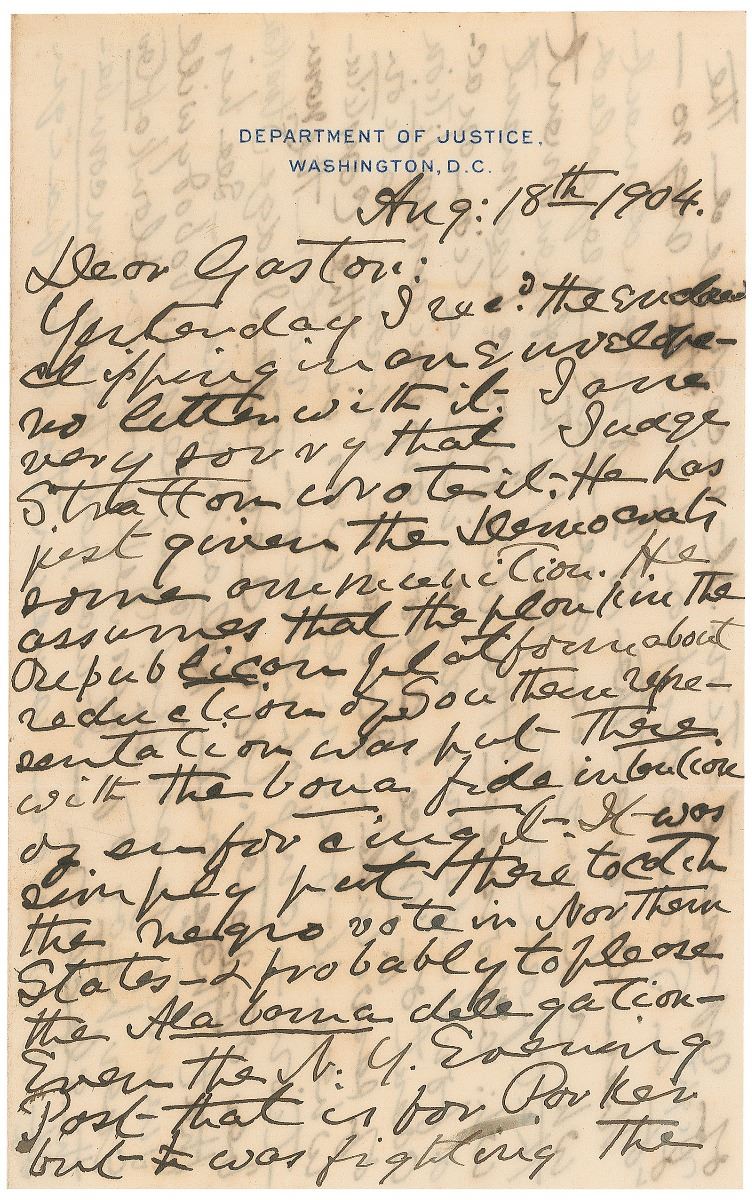 DEPARTMENT OF JUSTICE,
WASHINGTON, D.C.
Aug: 18th 1904.
Dear Gaston:
Yesterday I recd. the enclosed
clipping in an envelope-
no letter with it. I am
very sorry that Judge
Stratton wrote it. He has
just given the Democrats
some ammunition. He
assumes that the plank in the
Republican platform about
reduction of Southern repre-
sentation was put there
with the bona fide intention
of enforcing it. It was
simply put there to catch
the negro vote in Northern
States - & probably to please
the Alabama delegation-
Even the N. Y. Evening
Post that is for Parker
but was fighting the